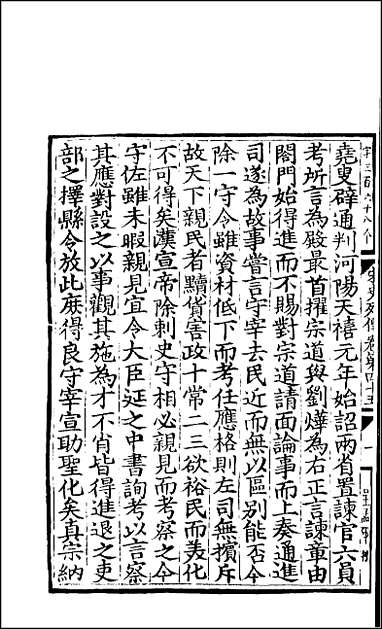 堯叟辟通判河陽天禧元年始詔兩省置諫官六員
考所言為殿最首擢宗道與劉燁為右正言諫章由
閤門始得進而不賜對宗道請面論事而上奏通進
司遂為故事嘗言守宰去民近而無以區别能否今
除一守令雖資材低下而考任應格則左司無擯斥
故天下親民者黷貨害政十常二三欲裕民而美化
不可得矣漢宣帝除刺史守相必親見而考察之今
守佐雖未暇親見宜令大臣延之中書詢考以言察
其應對設之以事觀其施為才不肖皆得進退之吏
部之擇縣令放此庶得良守宰宣助聖化矣真宗納
宋史列傳卷第四十五
一